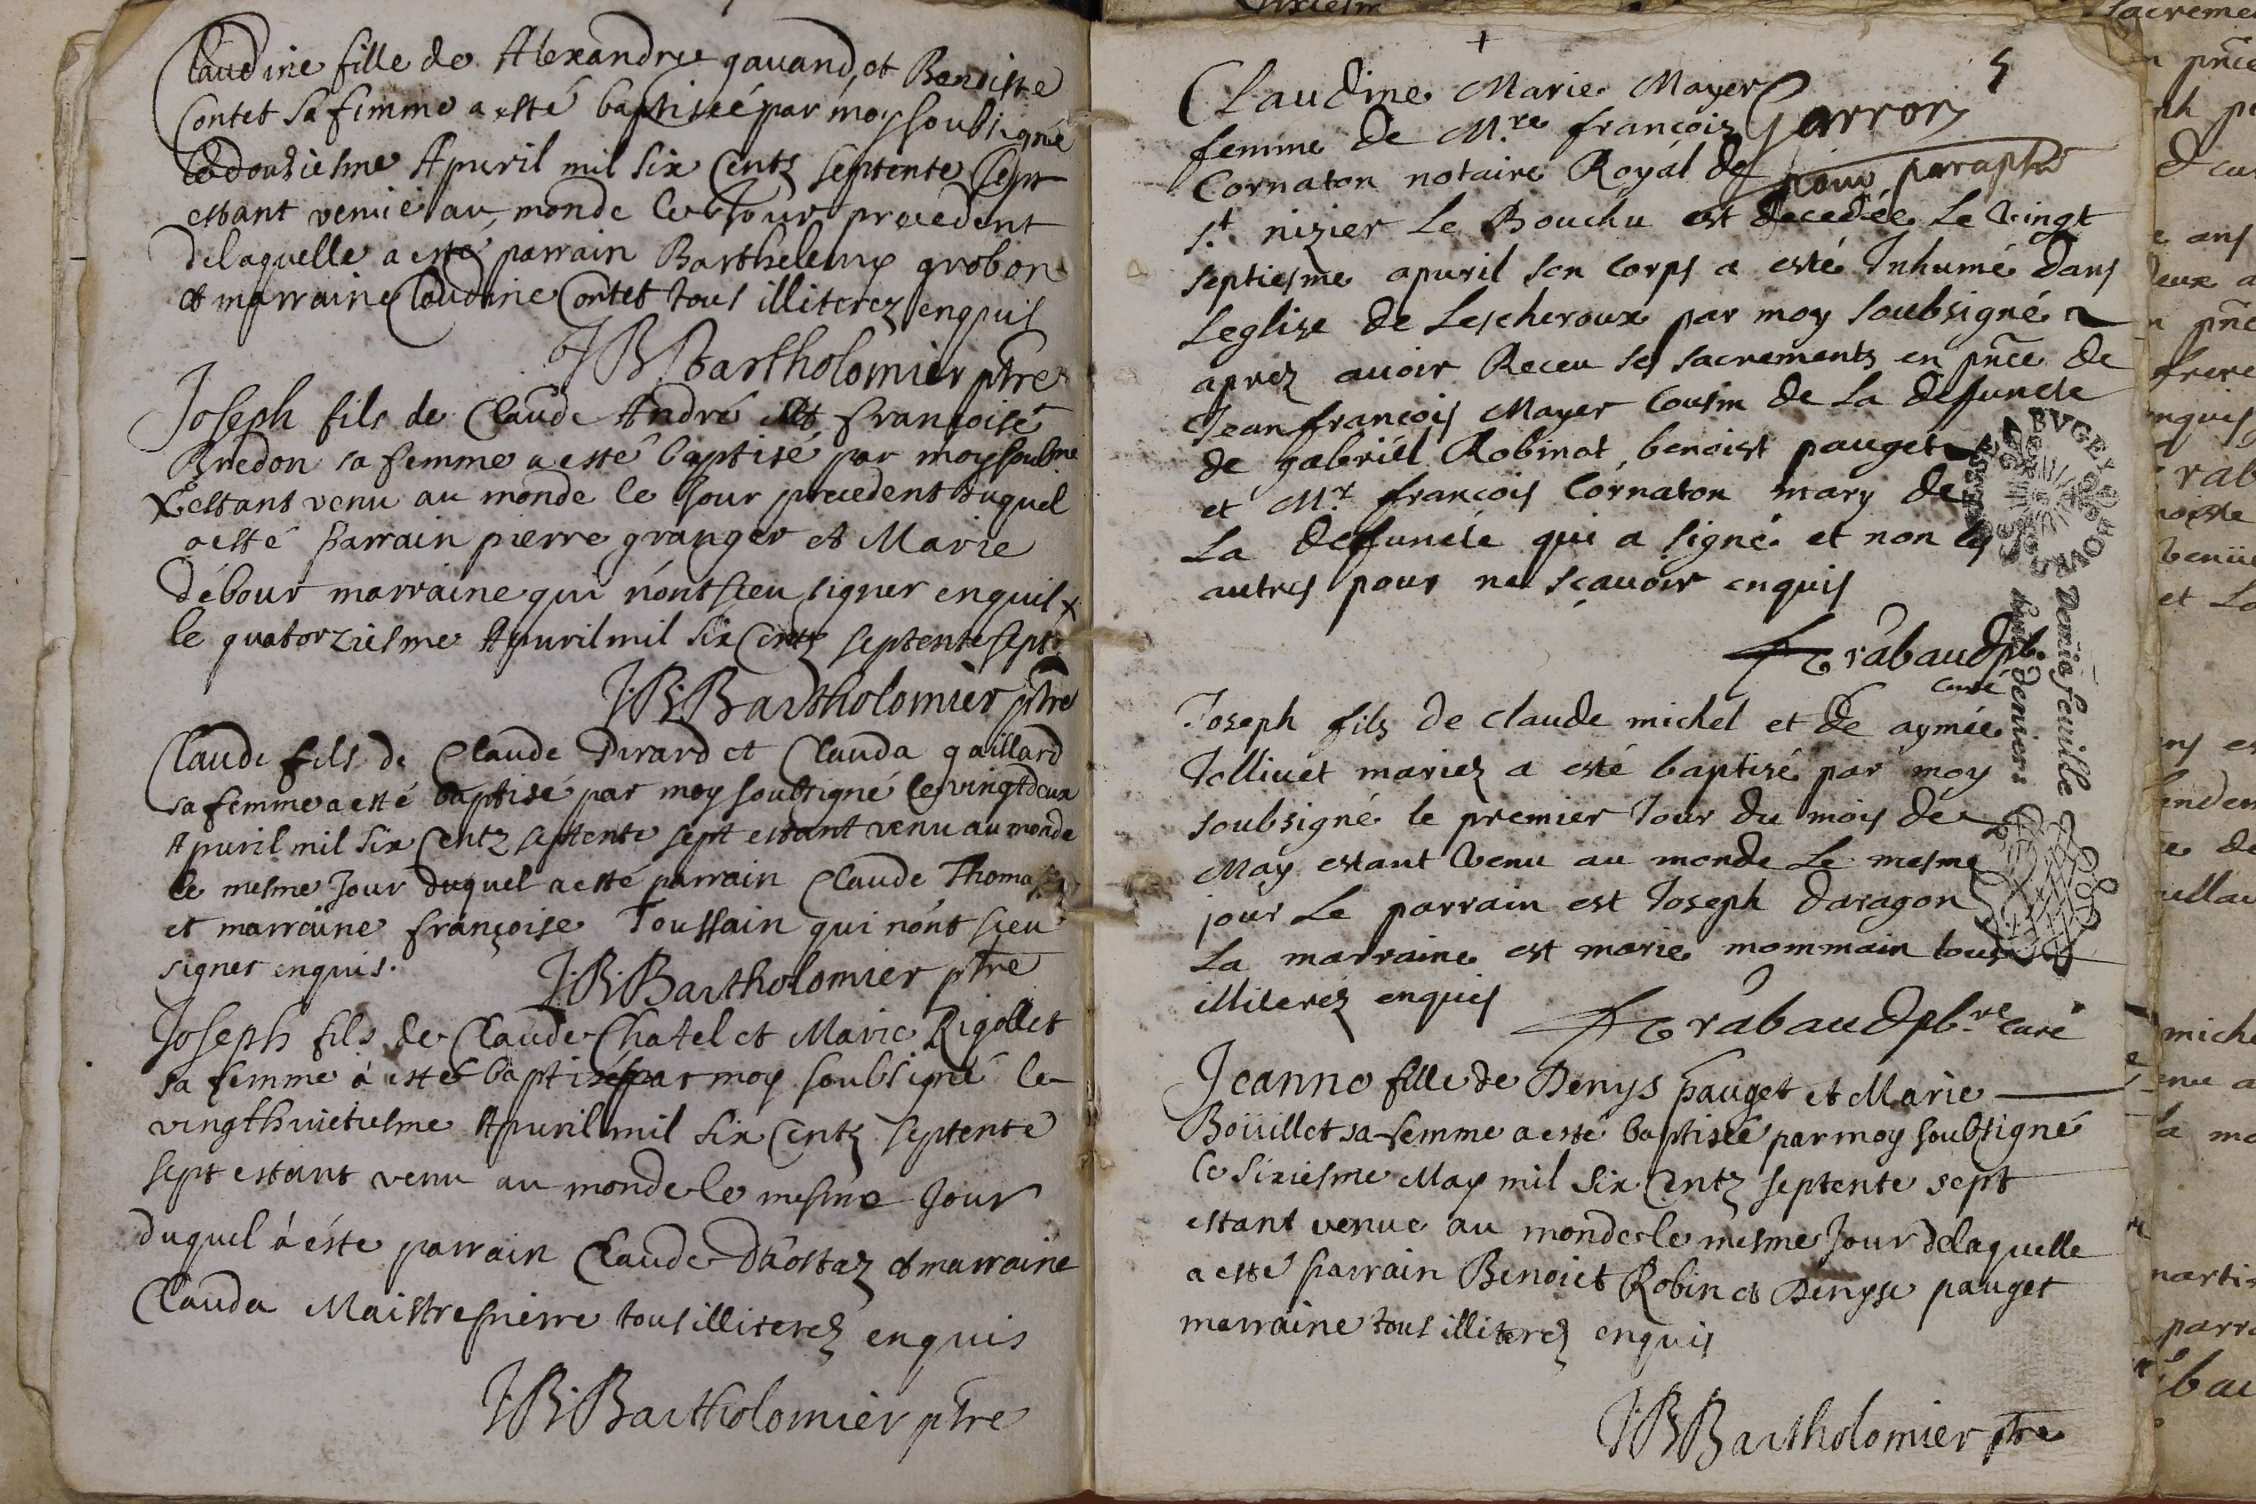 Claudine fille de Alexandre gavand, et Benoiste
Contet sa femme a esté baptiseé par moy soubsigné
le douziesme Apuril mil six Centz septente sept
estant venue au monde le Jour precedent
delaquelle a esté parrain Barthelemy grobon
et marraine Claudine Contet tous illiterez enquis
JB Bartholomier ptre
Joseph fils de Claude André et françoise
Bredon sa femme a esté baptisé par moy soubné
x estans venu au monde le Jour precedent duquel
a esté parrain pierre granger et Marie
débour marraine qui nont sceu signer enquis x
le quatorziesme Apuril mil six Centz septente sept
J.B. Bartholomier ptre
Claude fils de Claude Dirard et Clauda gaillard
sa femme a esté baptisé par moy soubsigné le vingtdeux
Apuril mil six Centz septente sept estant venu au monde
le mesme Jour duquel a esté parrain Claude Thomas
et marraine françoise Toussain qui nont sceu
signer enquis.
J.B. Bartholomier ptre
Joseph fils de Claude Chatel et Marie Rigollet
sa femme à esté baptisé par moy soubsigné le
vingthuictiesme Apuril mil six Centz septente
sept estant venu au monde le mesme Jour
duquel à éste parrain Claude Dhostaz et marraine
Clauda Maistrepierre tous illiterez enquis
J.B. Bartholomier ptre
5
Claudine Marie Mayer
femme de M.re françois Garron
Cornaton notaire Royal de pour paraphe
s.t nizier Le Bouchu est decedée Le Vingt
septiesme apuril son corps a esté Inhumé dans
Leglise de Lescheroux par moy soubsigné
aprez auoir Receu ses sacrements en pnce de
Jean françois Mayer Cousin de La defuncte
de gabriel Robinot benoist pauget
et M.r françois Cornaton mary de
La defuncte qui a signé et non les
autres pour ne sçauoir enquis
Trabaud pb.
curé
Joseph fils de claude michel et de aymée
Jollivet mariez a esté baptisé par moy
soubsigné le premier Jour du mois de
May estant Venu au monde Le mesme
jour Le parrain est Joseph daragon
La marraine est marie mommain tous
illiterez enquis
Trabaud pb.re curé
Jeanne fille de Denys pauget et Marie
Boüillet sa femme a esté baptiseé par moy soubsigné
le sixiesme May mil six Centz septente sept
estant venue au monde le mesme Jour delaquelle
a esté parrain Benoict Robin et Denyse pauget
marraine tous illiterez enquis
J.B. Bartholomier ptre
BVGEY
Demie feuille
huit deniers